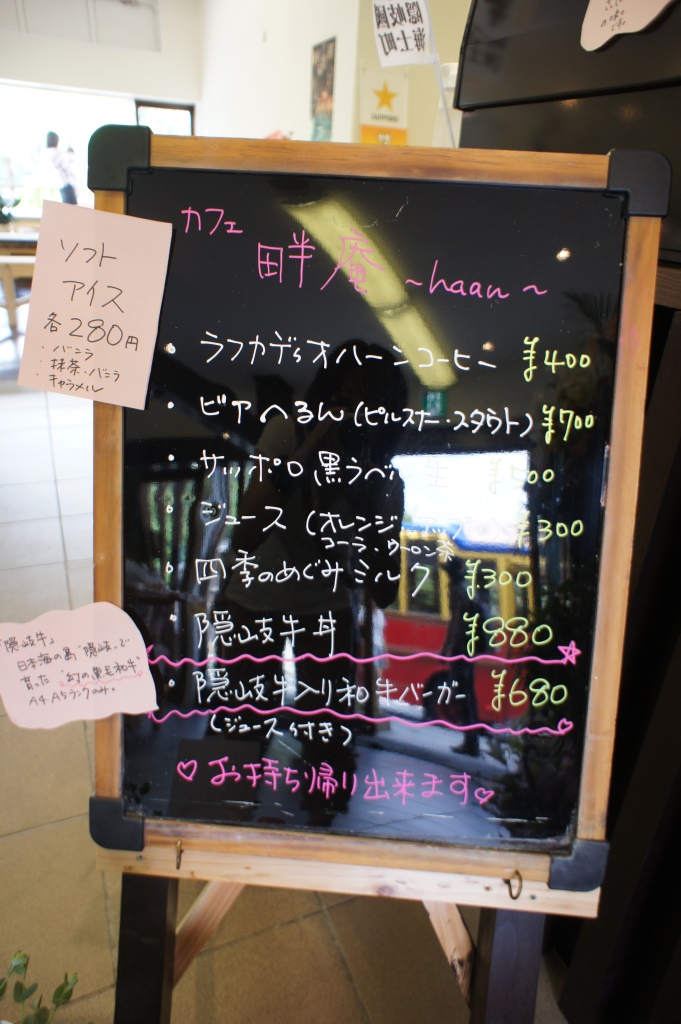 隠岐國
海士町
SAPPORO
ソフト
アイス
各280円
・バニラ
・抹茶・バニラ
・キャラメル
カフェ
畔庵 ~haan~
・ラフカディオハーンコーヒー ¥400
・ビアへるん(ピルスナー・スタウト) ¥700
・サッポロ黒ラベル 生 ¥500
・ジュース (オレンジ ¥300
コーラ・ウーロン茶
・四季のめぐみミルク ¥300
・隠岐牛丼 ¥880
・隠岐牛入り和牛バーガー ¥680
(ジュース付き)
♡お持ち帰り出来ます♡
「隠岐牛」
日本海の島"隠岐"で
育った "幻の黒毛和牛"
A4・A5ランクのみ。